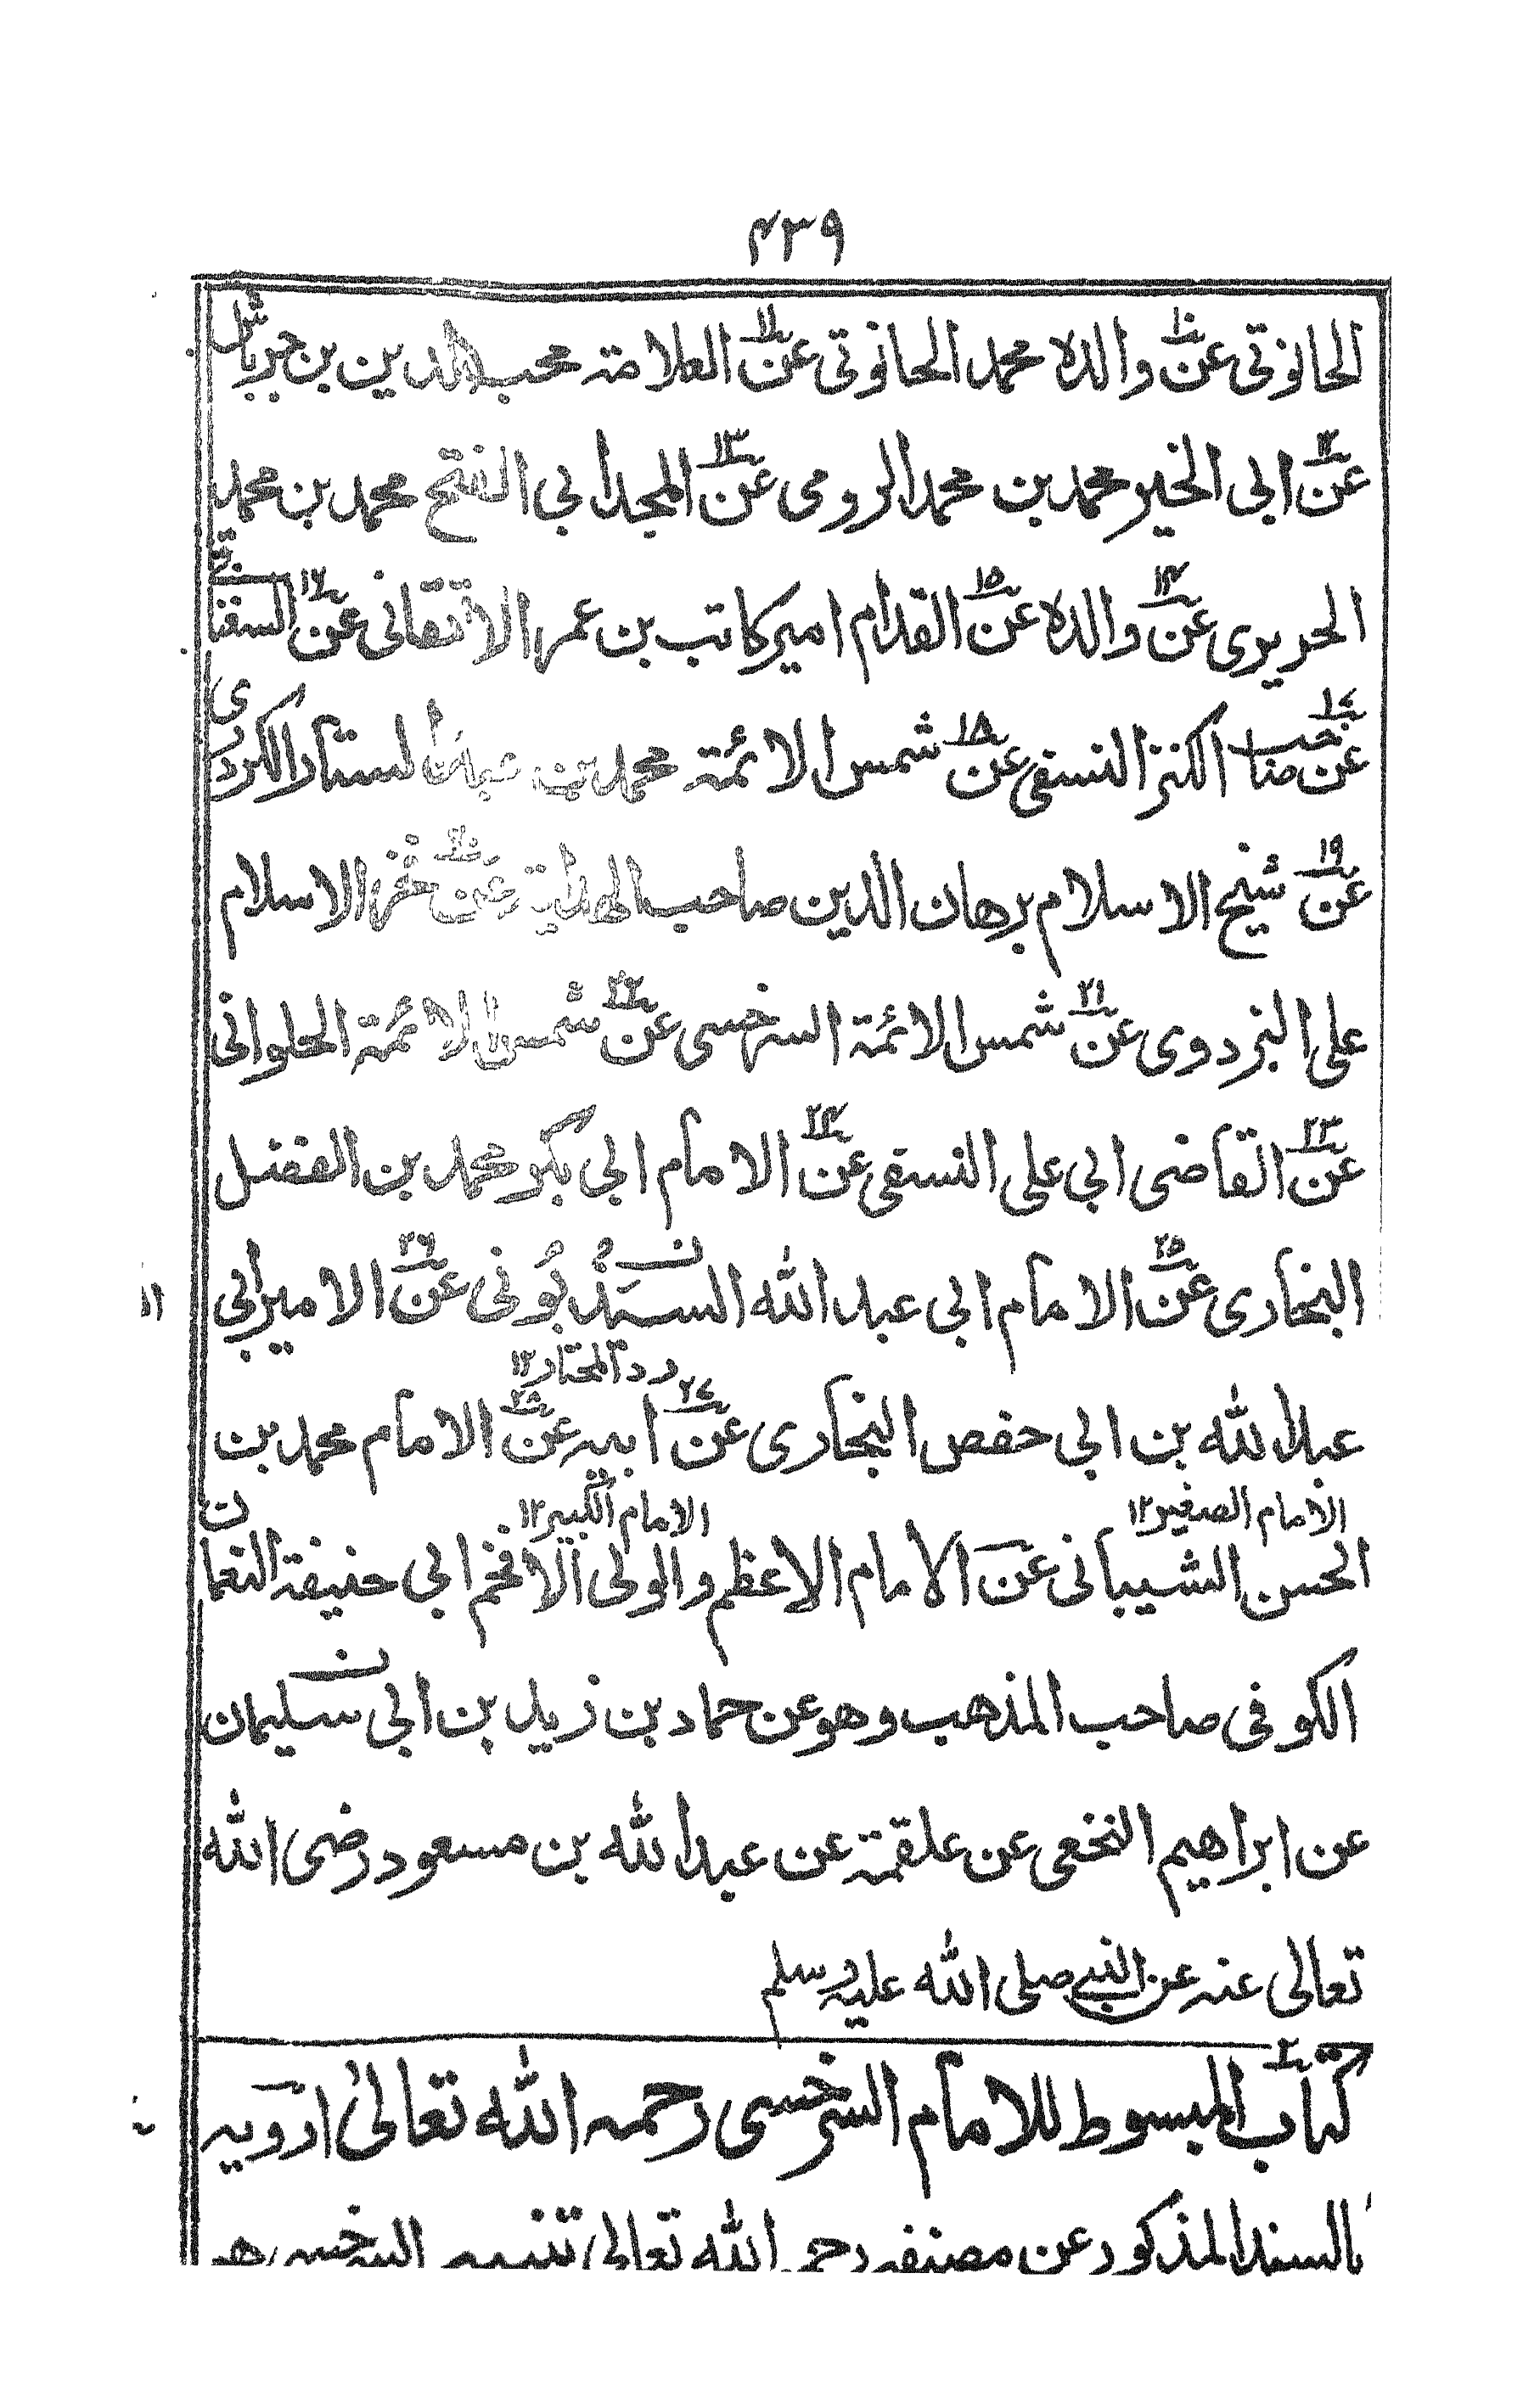 ۴۳۹
الحانوتی عن۱۰ والده محمد الحانوتی عن۱۱ العلامة محب الدین بن جرباش
عن۱۲ ابی الخیر محمد بن محمد الرومی عن۱۳ المجد ابی الفتح محمد بن محمد
الحریری عن۱۴ والده عن۱۵ القدام امیر کاتب بن عمر الاتقانی عن۱۶ السغناقی
عن۱۷ صاحب الکنز النسفی عن۱۸ شمس الائمة محمد بن عبدالستار الکردری
عن۱۹ شیخ الاسلام برهان الدین صاحب الهدایة عن۲۰ فخر الاسلام
علی البزدوی عن۲۱ شمس الائمة السرخسی عن۲۲ شمس الائمة الحلوانی
عن۲۳ القاضی ابی علی النسفی عن۲۴ الامام ابی بکر محمد بن الفضل
البخاری عن۲۵ الامام ابی عبد الله السبذُبُونی عن۲۶ الامیر ابی
رد المختار۱۲
عبد الله بن ابی حفص البخاری عن۲۷ ابیه عن۲۸ الامام محمد بن
الامام الصغیر۱۲ الامام الکبیر۱۲
الحسن الشیبانی عن الامام الاعظم والولی الافخم ابی حنیفة النعمان
الکوفی صاحب المذهب وهو عن حماد بن زید بن ابی سلیمان
عن ابراهیم النخعی عن علقمة عن عبد الله بن مسعود رضی الله
تعالی عنه عن النبی صلی الله علیه وسلم
کتاب۲ المبسوط للامام السرخسی رحمه الله تعالیٰ ارویه
بالسند المذکور عن مصنفه رحمه الله تعالی تنبیه السرخسی هو